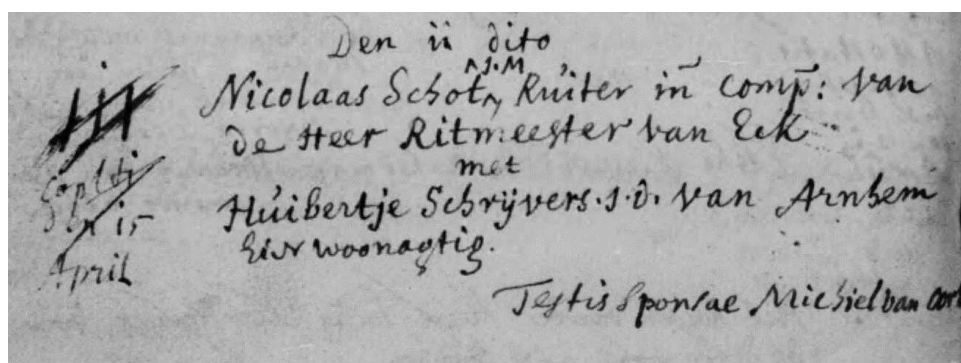 Den ii dito
Nicolaas Schot J.M Ruiter in comp: van
de Heer Ritmeester van Eck
met
Huibertje Schrijvers. J.d. van Arnhem
hier woonagtig.
Testis Sponsae Michiel van
iii
Copulati
den 15
April